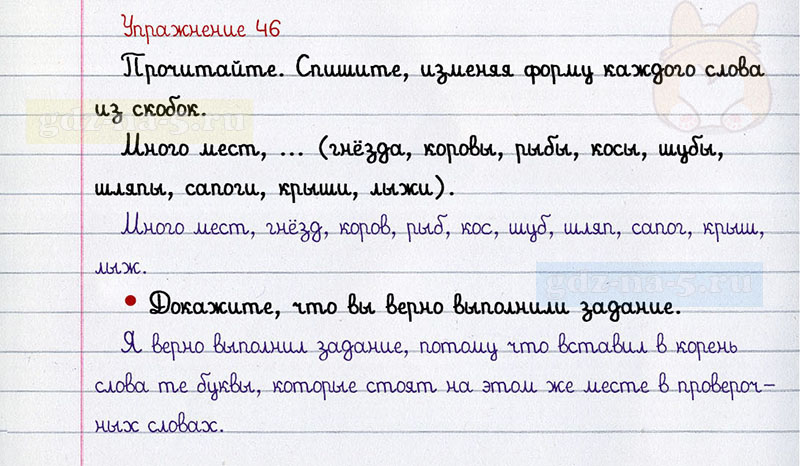 Упражнение 46
Прочитайте. Спишите, изменяя форму каждого слова
из скобок.
gdz-na-5.ru
Много мест, ... (гнёзда, коровы, рыбы, косы, шубы,
шляпы, сапоги, крыши, лыжи).
Много мест, гнёзд, коров, рыб, кос, шуб, шляп, сапог, крыш,
лыж.
gdz-na-5.ru
• Докажите, что вы верно выполнили задание.
Я верно выполнил задание, потому что вставил в корень
слова те буквы, которые стоят на этом же месте в провероч-
ных словах.